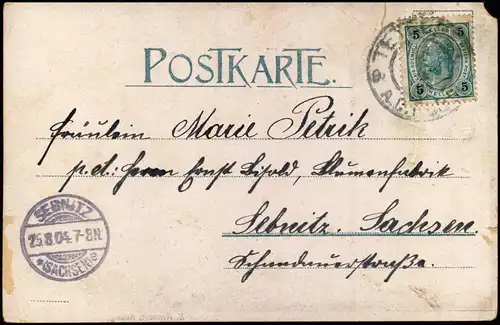 POSTKARTE.
5 5
5 5
TE
Fräulein Marie Petrik
p. ad. Herrn Ernst Lisold, Blumenfabrik
Sebnitz. Sachsen.
Schandauerstraße.
SEBNITZ
25.8.04. 7-8N
*(SACHSEN)*